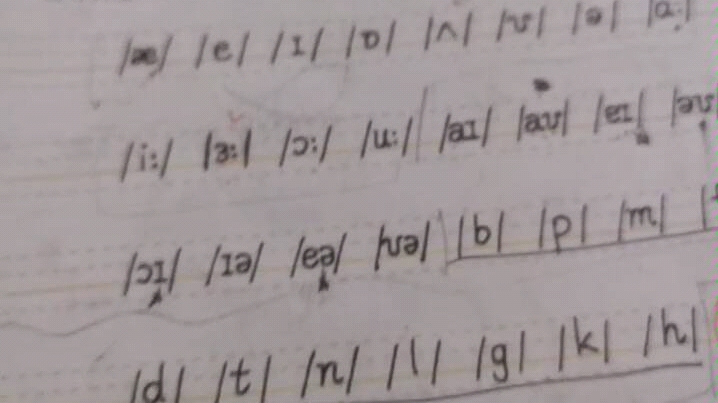 /æ/ /e/ /ɪ/ /ɒ/ /ʌ/ /ʊ/ /ə/ /ɑ:/
/i:/ /ɜ:/ /ɔ:/ /u:/ /aɪ/ /aʊ/ /eɪ/ /əʊ
/ɔɪ/ /ɪə/ /eə/ /ʊə/ /b/ /p/ /m/
/d/ /t/ /n/ /l/ /g/ /k/ /h/